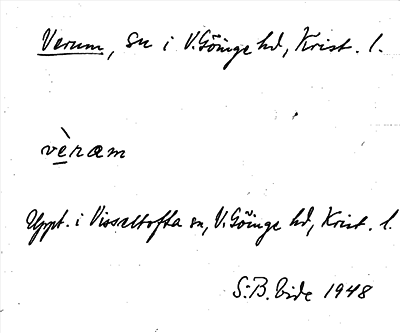 Verum, sn i V. Göinge hd, Krist. l.
vèræm
Uppt. i Visseltofta sn, V. Göinge hd, Krist. l.
S. B. Vide 1948